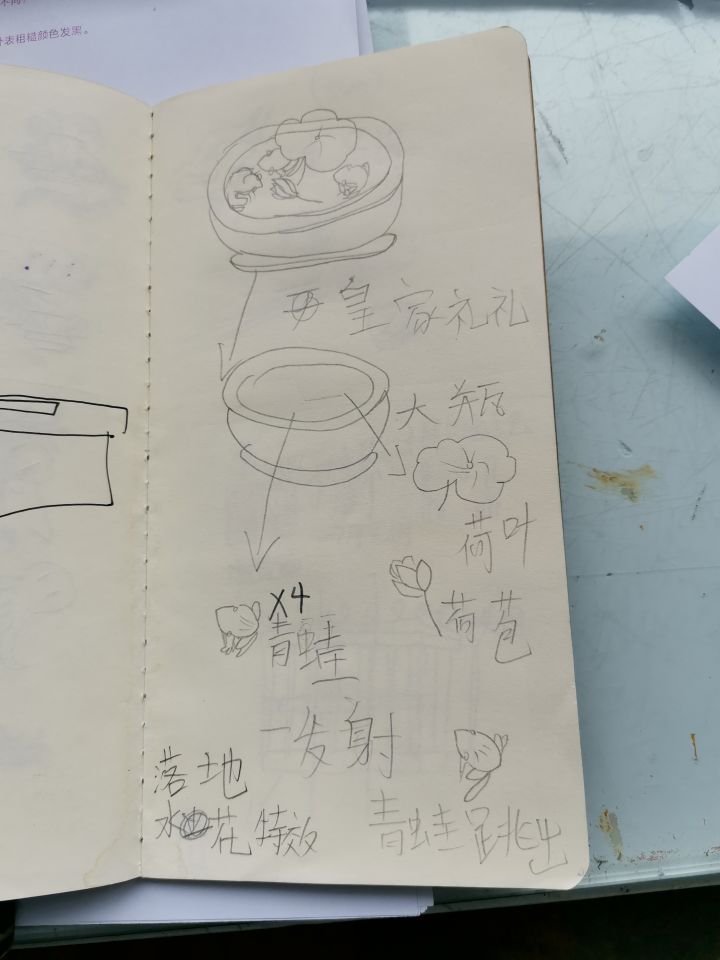 不同，
表粗糙颜色发黑。
女皇家礼礼
大瓶
荷叶
荷苞
X4
青蛙
一发射
落地
水花特效
青蛙跳出